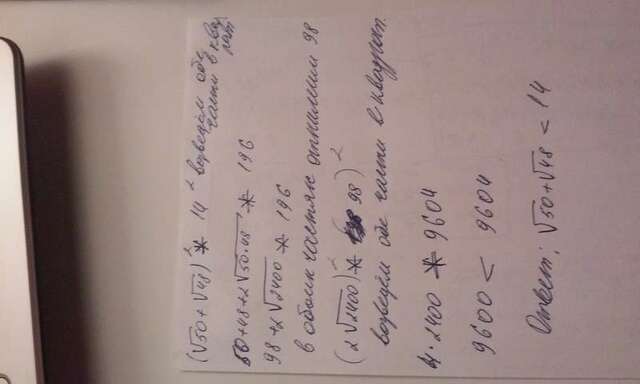 (√50+√48)² * 14² возведём обе
части в квад
рат
50+48+2√50·48 * 196
98+2√2400 * 196
в обоих частях отнимим 98
(2√2400)² * (98)²
возведём обе части в квадрат.
4·2400 * 9604
9600 < 9604
Ответ: √50+√48 < 14